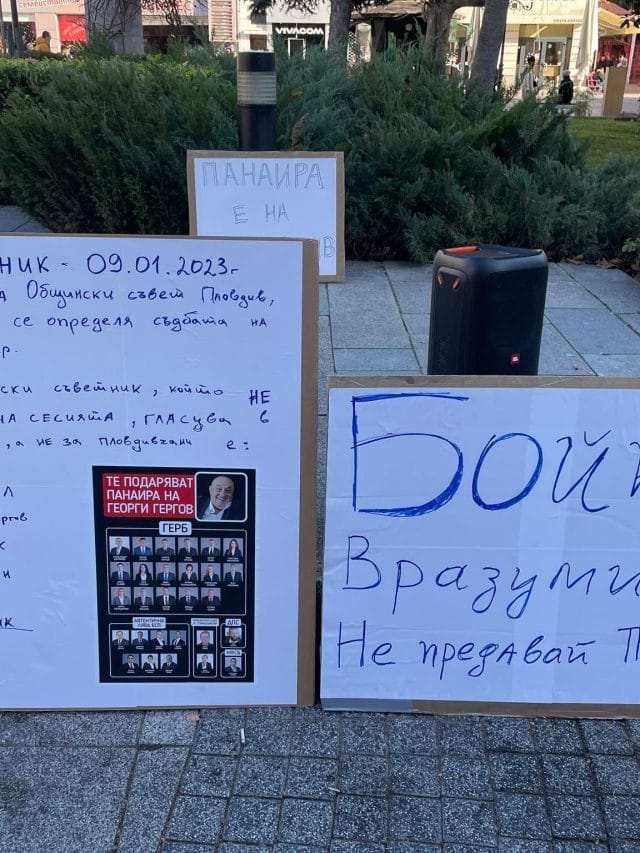 VIVACOM
ПАНАИРА
Е НА
ИВ
НИК - 09.01.2023г
А Общински съвет Пловдив,
се определя съдбата на
р.
ски съветник, който НЕ
НА СЕСИЯТА, ГЛАСУВА в
, а не за пловдивчани е:
Л
К
И
ИК
ТЕ ПОДАРЯВАТ
ПАНАИРА НА
ГЕОРГИ ГЕРГОВ
ГЕРБ
АВТЕНТИЧНА
ЛЯВА БСП
ДПС
НФСБ
JBL
БОЙ
Вразуми
Не предавай П